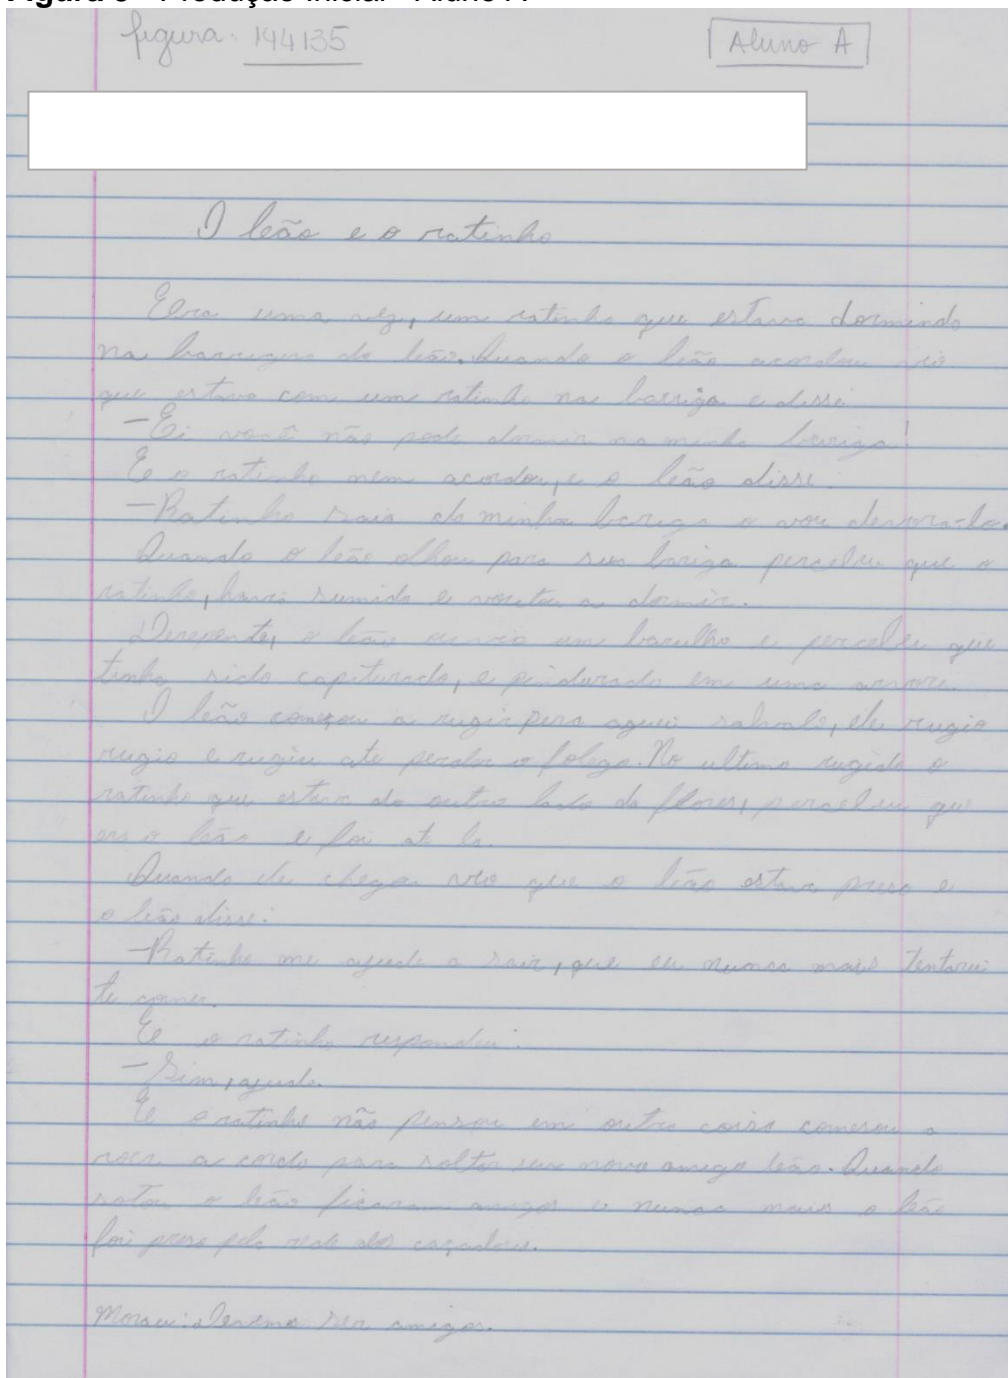 Figura 3 - Produção Inicial - Aluno A
figura: 144135
Aluno A
O leão e o ratinho
Era uma vez, um ratinho que estava dormindo
na barriga do leão. Quando o leão acordou vio
que estava com um ratinho na barriga e disse
-Ei você não pode dormir na minha barriga!
E o ratinho nem acordou, e o leão disse:
-Ratinho saia da minha bariga o vou devora-lo.
Quando o leão olhou para sua bariga percebeu que o
ratinho, havia sumido e voutou a dormir.
Derepente, o leão ouvio um barulho e percebeu que
tinha sido capiturado, e pindurado em uma arvore.
O leão começou a rugir pera aguei salvalo, ele rugio
rugio e rugiu ate perder o folego. No ultimo rugido o
ratinho que estava do outro lado da flores, percebeu que
era o leão e foi at la.
Quando ele chegou vio que o leão estava preso e
o leão disse:
-Ratinho me ajude a sair, que eu nunca mais tentarei
te comer.
E o ratinho respondeu:
-Sim, ajudo.
E o ratinho não pensou em outra coisa comesou a
roer a corda para soltar seu novo amigo leão. Quando
sotou o leão ficaram amigos e nunca mais o leão
foi preso pela rede dos caçadores.
Moral: Devemos ser amigos.